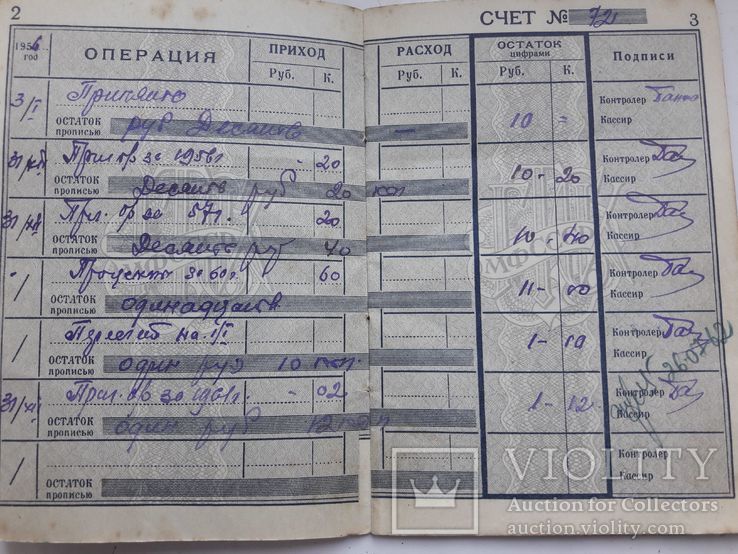 2
СЧЕТ № 72
3
1956 год
ОПЕРАЦИЯ
ПРИХОД
РАСХОД
ОСТАТОК цифрами
Подписи
Руб. К.
Руб. К.
Руб. К.
3/I
Принято
Контролер
ОСТАТОК прописью
руб Десять
—
10 =
Кассир
31/XII
за 1956г
- 20
Контролер
ОСТАТОК прописью
Десять руб 20 коп
10 - 20
Кассир
31/XII
57г.
20
Контролер
ОСТАТОК прописью
Десять руб 40
10 40
Кассир
Проценты за 60г.
60
Контролер
ОСТАТОК прописью
одинадцать
11 - 00
Кассир
на 1/I
Контролер
ОСТАТОК прописью
один руб 10 коп.
1 - 10
Кассир
31/XII
за 1961г.
- 02
Контролер
ОСТАТОК прописью
один руб 12 коп
1 - 12
Кассир
260762
Контролер
ОСТАТОК прописью
Кассир
VIOLITY
Auction for Collectors
auction.violity.com